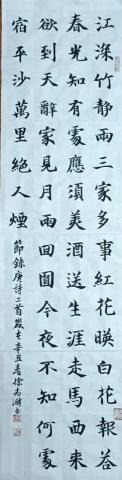 江深竹靜兩三家多事紅花暎白花報答
春光知有處應須美酒送生涯走馬西來
欲到天辭家見月兩回圓今夜不知何處
宿平沙萬里絕人煙
節錄唐詩二首歲在辛丑春徐志